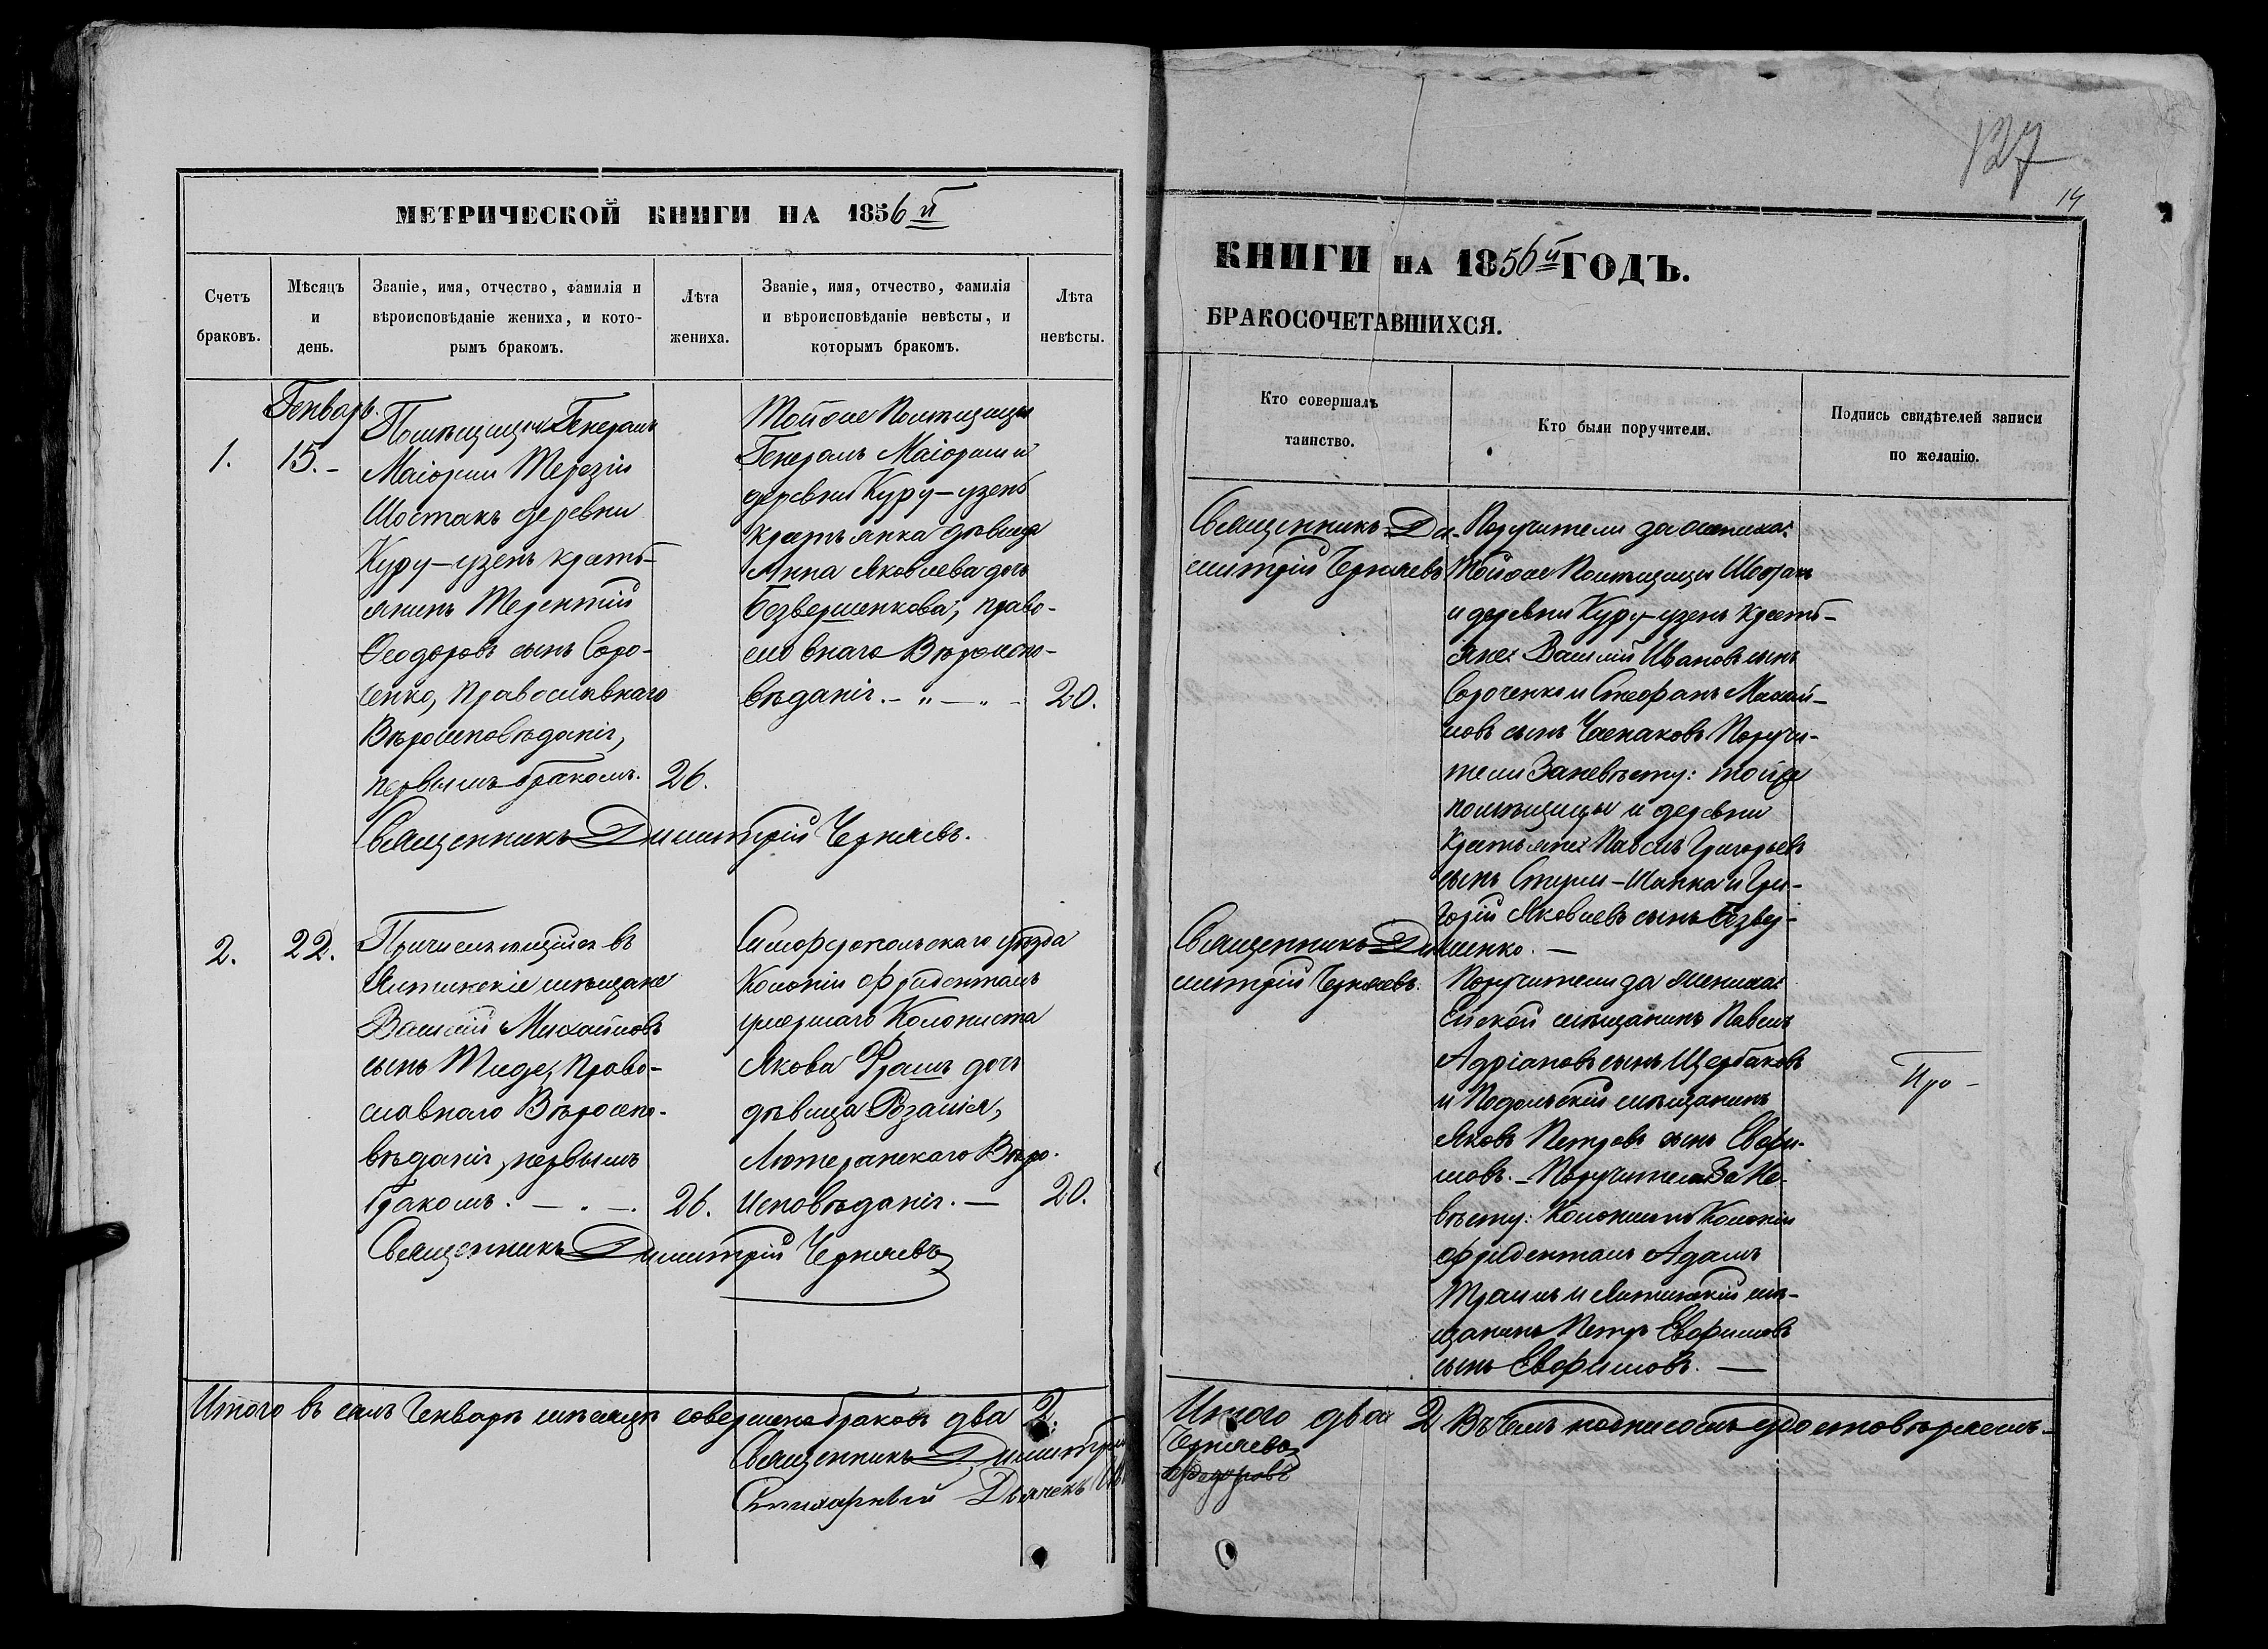 МЕТРИЧЕСКОЙ КНИГИ НА 1856 й
Счетъ браковъ.
Мѣсяцъ и день.
Званіе, имя, отчество, фамилія и
вѣроисповѣданіе жениха, и кото-
рымъ бракомъ.
Лѣта жениха.
Званіе, имя, отчество, фамилія
и вѣроисповѣданіе невѣсты, и
которымъ бракомъ.
Лѣта невѣсты.
Генварь.
1. 15.-
Помѣщицы Генералъ
Маіорши Терезіи
Шостакъ деревни
Куру-узень кресть-
янинъ Терентій
Ѳеодоровъ сынъ Соро-
ченко, Православнаго
Вѣроисповѣданія,
первымъ бракомъ. 26.
Тойже Помѣщицы
Генералъ Маіорши и
деревни Куру-узень
крестьянка дѣвица
Анна Яковлева дочь
Безвершенкова, право-
славнаго Вѣроиспо-
вѣданія. - „ - „ - 20.
Священникъ Димитрій Черняевъ.
2. 22.
Причисляющійся въ
Ялтинскіе мѣщане
Василій Михайловъ
сынъ Тиде, Право-
славнаго Вѣроиспо-
вѣданія, первымъ
бракомъ. - . - . 26.
Симферопольскаго уѣзда
Колоніи Фриденталь
умершаго Колониста
Якова Фрашъ дочь
дѣвица Розалія,
Лютеранскаго Вѣро-
исповѣданія. - 20.
Священникъ Димитрій Черняевъ
Итого въ семъ Генварѣ мѣсяцѣ совершено браковъ два 2.
Священникъ Димитрій
Стихарный Дьячекъ
127
14
КНИГИ НА 1856 й ГОДЪ.
БРАКОСОЧЕТАВШИХСЯ.
Кто совершалъ
таинство.
Кто были поручители.
Подпись свидѣтелей записи
по желанію.
Священникъ Ди-
митрій Черняевъ
Поручители за жениха:
Тойже Помѣщицы Шостакъ
и деревни Куру-узень кресть-
яне: Василій Ивановъ сынъ
Сороченко и Стефанъ Михай-
ловъ сынъ Часпаковъ. Поручи-
тели За невѣсту: тойже
помѣщицы и деревни
Крестьяне: Павелъ Григорьевъ
сынъ Стули-Шапка и Гри-
горій Яковлевъ сынъ Безвер-
шенко. -
Священникъ Ди-
митрій Черняевъ.
Поручители за жениха:
Ейской мѣщанинъ Павелъ
Адріановъ сынъ Щербаковъ
и Подольскій мѣщанинъ
Яковъ Петровъ сынъ Евфи-
мовъ. - Поручители За Не-
вѣсту: Колонистъ Колоніи
Фриденталь Адамъ
и Ялтинскій мѣ-
щанинъ Петръ Евфимовъ
сынъ Евфимовъ. -
Про-
Итого два 2
Въ чемъ подписомъ удостовѣряемъ.
Черняевъ
Ѳедоровъ